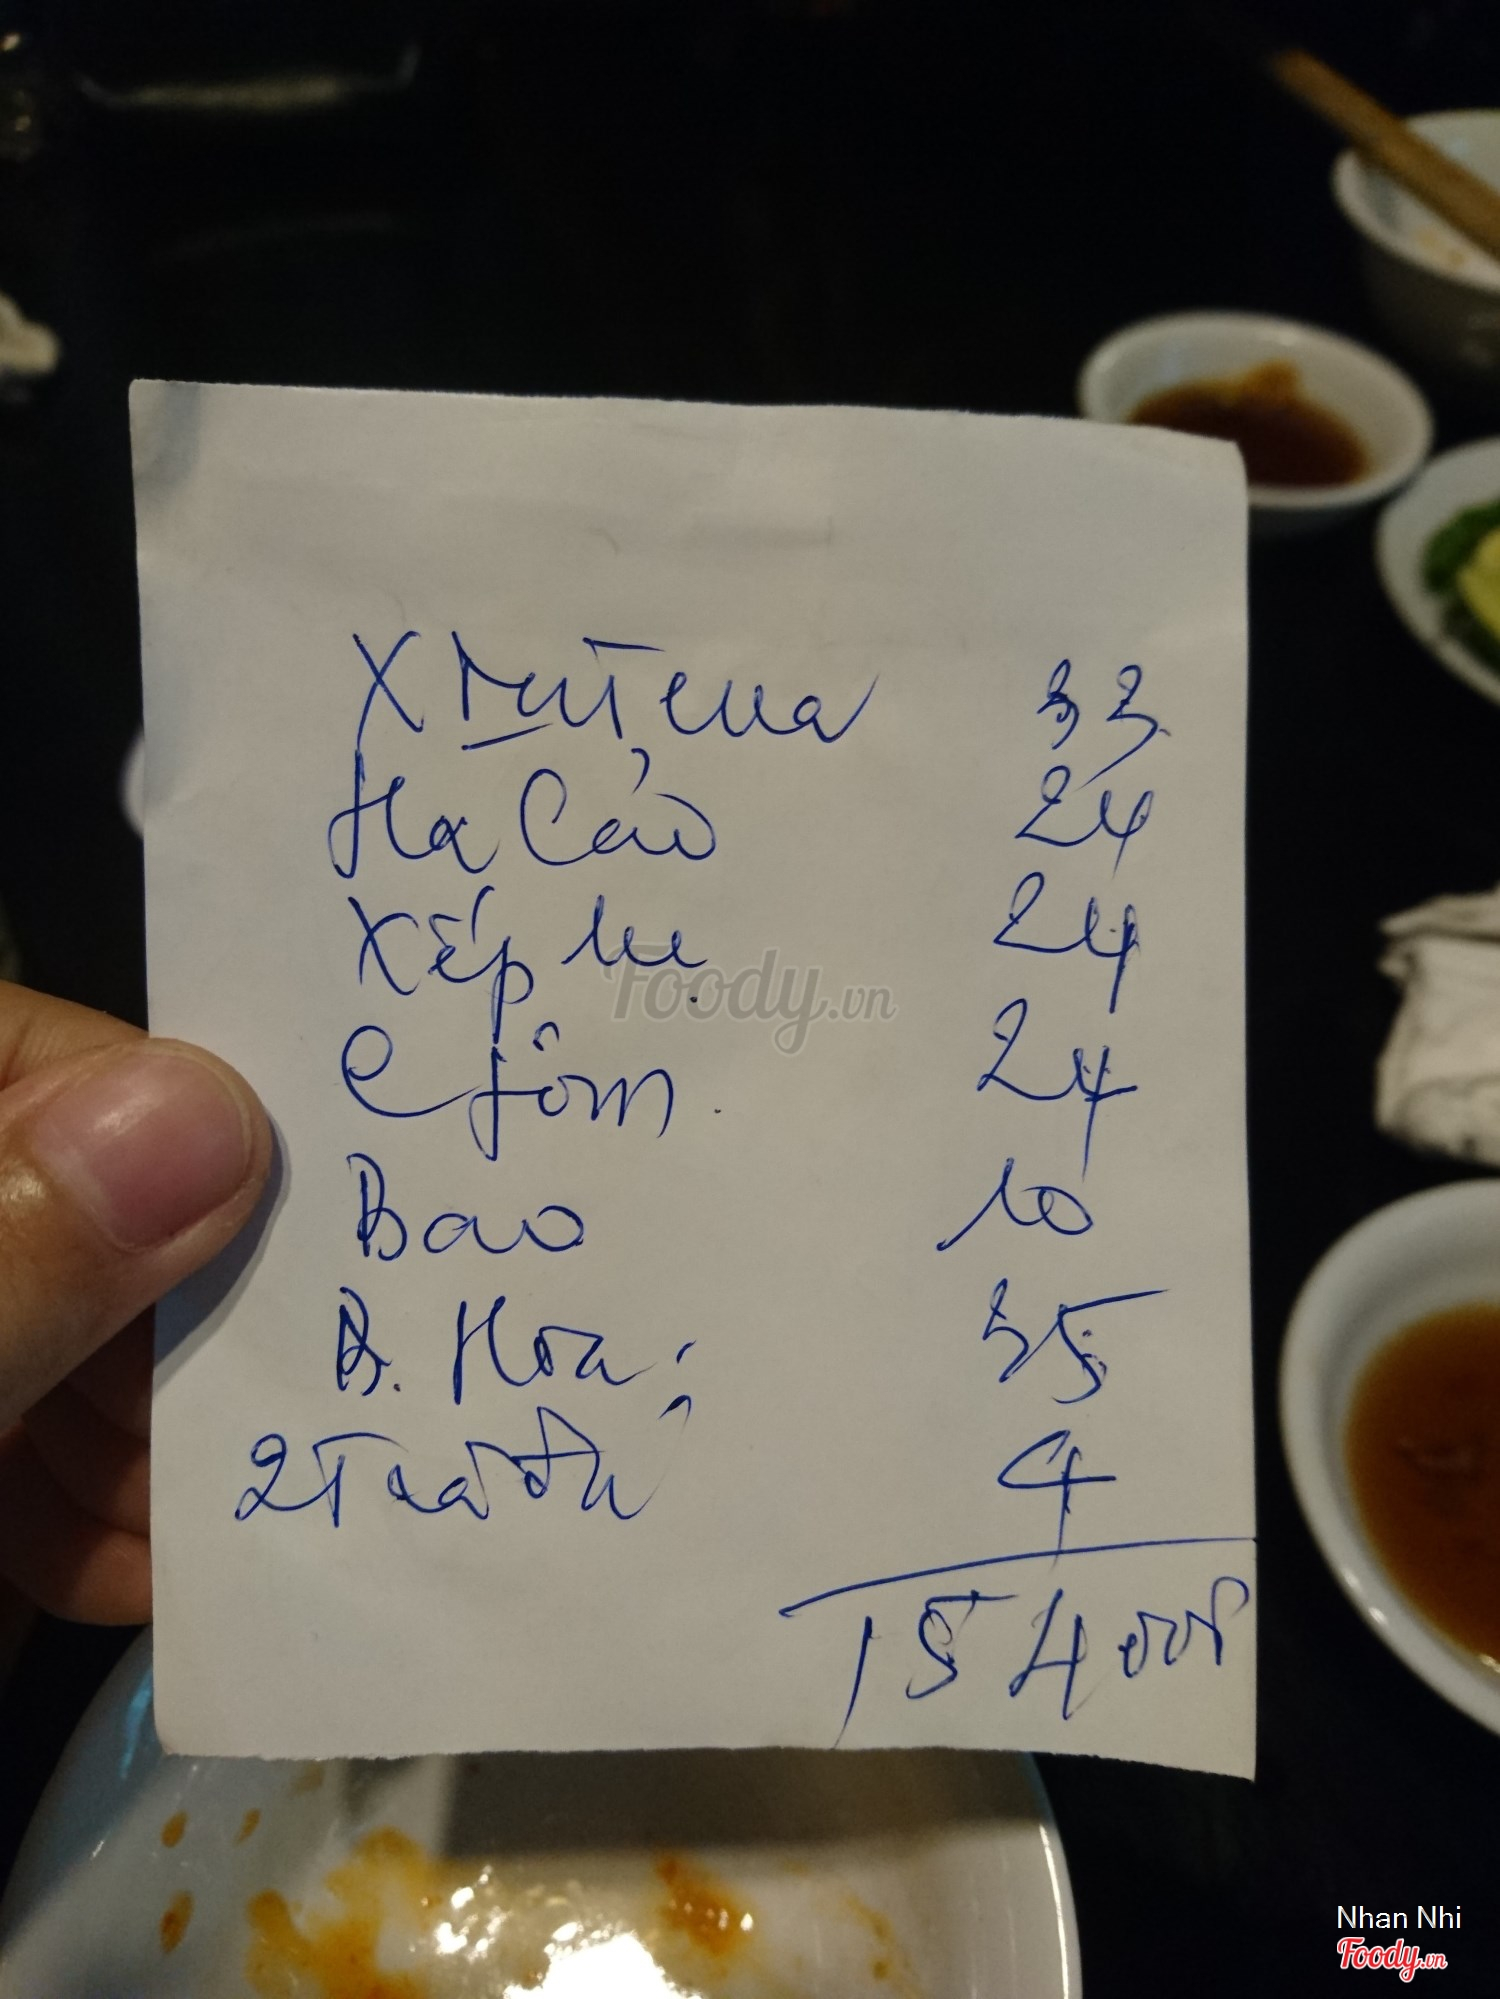 X 33
Há Cảo 24
Xếp 24
C tôm 24
Bao 10
B. Hoa 35
2 Trà đá 4
154000đ
Foody.vn
Nhan Nhi
Foody.vn